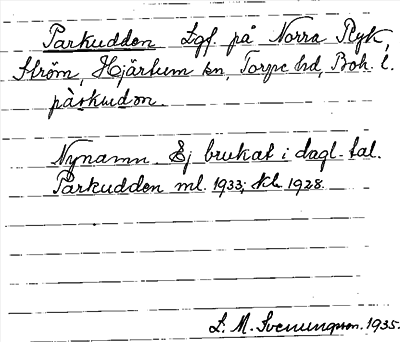 Parkudden Lgf. på Norra Ryk,
Ström, Hjärtum sn, Torpe hd, Boh. l.
pàrkudən.
Nynamn. Ej brukat i dagl. tal.
Parkudden ml. 1933; 1928.
L. M. Svenungsson. 1935.